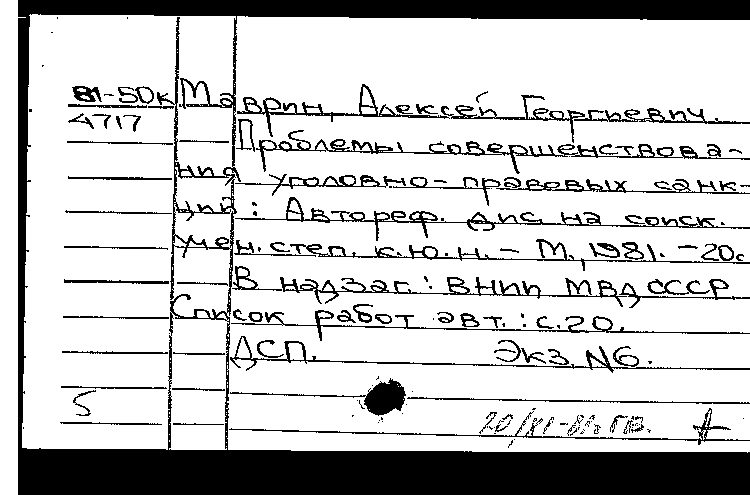 81-50к Маврин, Алексей Георгиевич.
4717 Проблемы совершенствова-
ния уголовно-правовых санк-
ций: Автореф. дис. на соиск.
учен. степ. к.ю.н. - М., 1981. - 20с
В надзаг.: ВНИИ МВД СССР
Список работ авт.: с.20.
ДСП. Экз. N6.
5
20/XI-81г. ГВ.